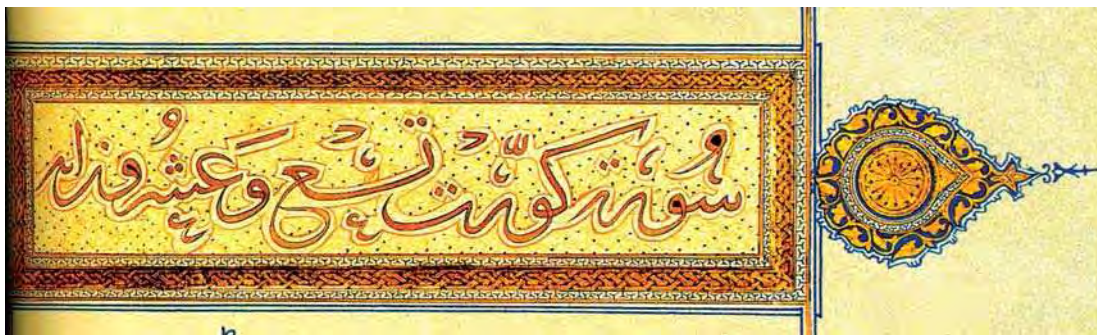 سُورَة كُوِّرَتْ تِسْعٌ وَعِشْرُونَ اٰية